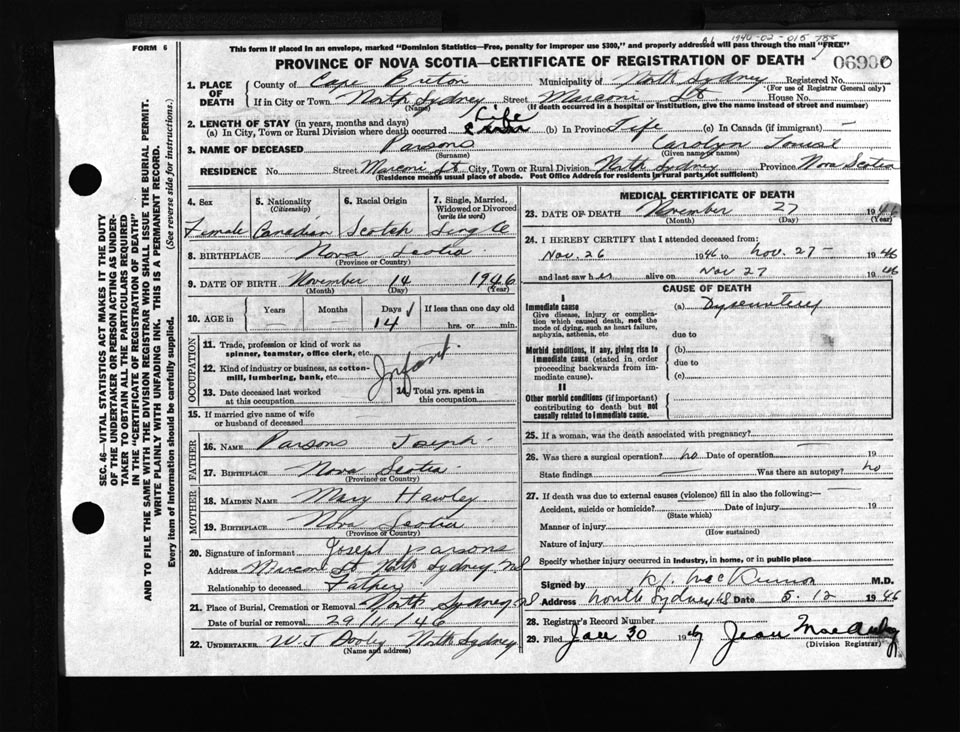 FORM 6
This form if placed in an envelope, marked "Dominion Statistics—Free, penalty for improper use $300," and properly addressed will pass through the mail "FREE"
PROVINCE OF NOVA SCOTIA—CERTIFICATE OF REGISTRATION OF DEATH
1. PLACE OF DEATH
County of Cape Breton Municipality of North Sydney Registered No.
(For use of Registrar General only)
If in City or Town North Sydney Street Marconi St House No.
(Name) (If death occurred in a hospital or institution, give the name instead of street and number)
2. LENGTH OF STAY (in years, months and days)
(a) In City, Town or Rural Division where death occurred Life (b) In Province Life (c) In Canada (if immigrant) —
3. NAME OF DECEASED Parsons Carolyn Louise
(Surname) (Given name or names)
RESIDENCE No. Street Marconi St City, Town or Rural Division North Sydney Province Nova Scotia
(Residence means usual place of abode. Post Office Address for residents in rural parts not sufficient)
4. Sex Female
5. Nationality (Citizenship) Canadian
6. Racial Origin Scotch
7. Single, Married, Widowed or Divorced (write the word) Single
8. BIRTHPLACE Nova Scotia
(Province or Country)
9. DATE OF BIRTH November 14 1946
(Month) (Day) (Year)
10. AGE in Years Months Days 14 If less than one day old
hrs. or min.
OCCUPATION
11. Trade, profession or kind of work as spinner, teamster, office clerk, etc.
12. Kind of industry or business, as cotton-mill, lumbering, bank, etc.
Infant
13. Date deceased last worked at this occupation
14. Total yrs. spent in this occupation
15. If married give name of wife or husband of deceased
FATHER
16. NAME Parsons Joseph
17. BIRTHPLACE Nova Scotia
(Province or Country)
MOTHER
18. MAIDEN NAME Mary Hawley
19. BIRTHPLACE Nova Scotia
(Province or Country)
20. Signature of informant Joseph Parsons
Address Marconi St North Sydney NS
Relationship to deceased Father
21. Place of Burial, Cremation or Removal North Sydney NS
Date of burial or removal 29/11/46
22. UNDERTAKER W. J Dooley North Sydney
(Name and address)
MEDICAL CERTIFICATE OF DEATH
23. DATE OF DEATH November 27 1946
(Month) (Day) (Year)
24. I HEREBY CERTIFY that I attended deceased from:
Nov. 26 1946 to Nov. 27— 1946
and last saw her alive on Nov 27 1946
CAUSE OF DEATH
I
Immediate cause
Give disease, injury or complication which caused death, not the mode of dying, such as heart failure, asphyxia, asthenia, etc.
(a) Dysentery
due to
Morbid conditions, if any, giving rise to immediate cause (stated in order proceeding backwards from immediate cause).
(b)
due to
(c)
II
Other morbid conditions (if important) contributing to death but not causally related to immediate cause.
25. If a woman, was the death associated with pregnancy? —
26. Was there a surgical operation? no Date of operation 19
State findings — Was there an autopsy? no
27. If death was due to external causes (violence) fill in also the following:— —
Accident, suicide or homicide? Date of injury 19
(State which)
Manner of injury
(How sustained)
Nature of injury
Specify whether injury occurred in industry, in home, or in public place
Signed by MacKinnon M.D.
Address North Sydney NS Date 5.12 1946
28. Registrar's Record Number
29. Filed Jan 30 1947 Jean
(Division Registrar)
SEC. 46—VITAL STATISTICS ACT MAKES IT THE DUTY
OF THE UNDERTAKER OR PERSON ACTING AS UNDER-
TAKER TO OBTAIN ALL THE PARTICULARS REQUIRED
IN THE "CERTIFICATE OF REGISTRATION OF DEATH"
AND TO FILE THE SAME WITH THE DIVISION REGISTRAR WHO SHALL ISSUE THE BURIAL PERMIT.
WRITE PLAINLY WITH UNFADING INK. THIS IS A PERMANENT RECORD.
Every item of information should be carefully supplied. (See reverse side for instructions.)